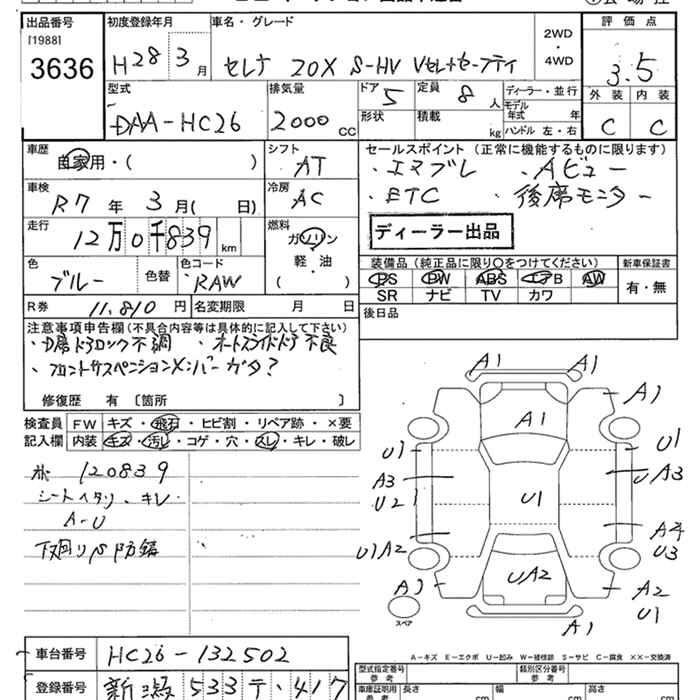 出品番号 初度登録年月 車名・グレード 2WD・4WD 評価点
[1988]
3636 H28年 3月 セレナ 20X S-HV Vセレ+セーフティ 3.5
外装 内装
C C
型式 排気量 ドア 定員 ディーラー・並行
DAA-HC26 2000cc 5 8人 モデル年式 年
形状 積載 kg ハンドル 左・右
車歴 自家用・( ) シフト AT
セールスポイント (正常に機能するものに限ります)
・エマブレ ・Aビュー
・ETC ・後席モニター
車検 R7年 3月( 日) 冷房 AC
ディーラー出品
走行 12万0千839km 燃料 ガソリン
軽・油
( )
色 ブルー 色替 色コード RAW
装備品 (純正品に限り○をつけてください) 新車保証書
PS PW ABS エアB AW 有・無
SR ナビ TV カワ
R券 11,810円 名変期限 月 日
後日品
注意事項申告欄(不具合内容等は具体的に記入して下さい)
ドアロック不調 ・オートスライドドア不良
・フロントサスペンションメンバーガタ?
修復歴 有 〔箇所 〕
検査員記入欄 FW キズ・飛石・ヒビ割・リペア跡・×要
内装 キズ・汚レ・コゲ・穴・スレ・キレ・破レ
120839
シートヘタリ、キレ
A-U
下廻りS防錆
A1 A1
A1 A1
U1 U1
A3 U A3
U2 U1
A4
U1A2 U3
UA2
A1 A2
U1
スペア A1
A-キズ E-エクボ U-凹み W-補修跡 S-サビ C-腐食 XX-交換済
車台番号 HC26-132502
型式指定番号 参考 類別区分番号 参考
登録番号 新潟 533 テ・417
車庫証明用 参考 長さ cm 幅 cm 高さ cm